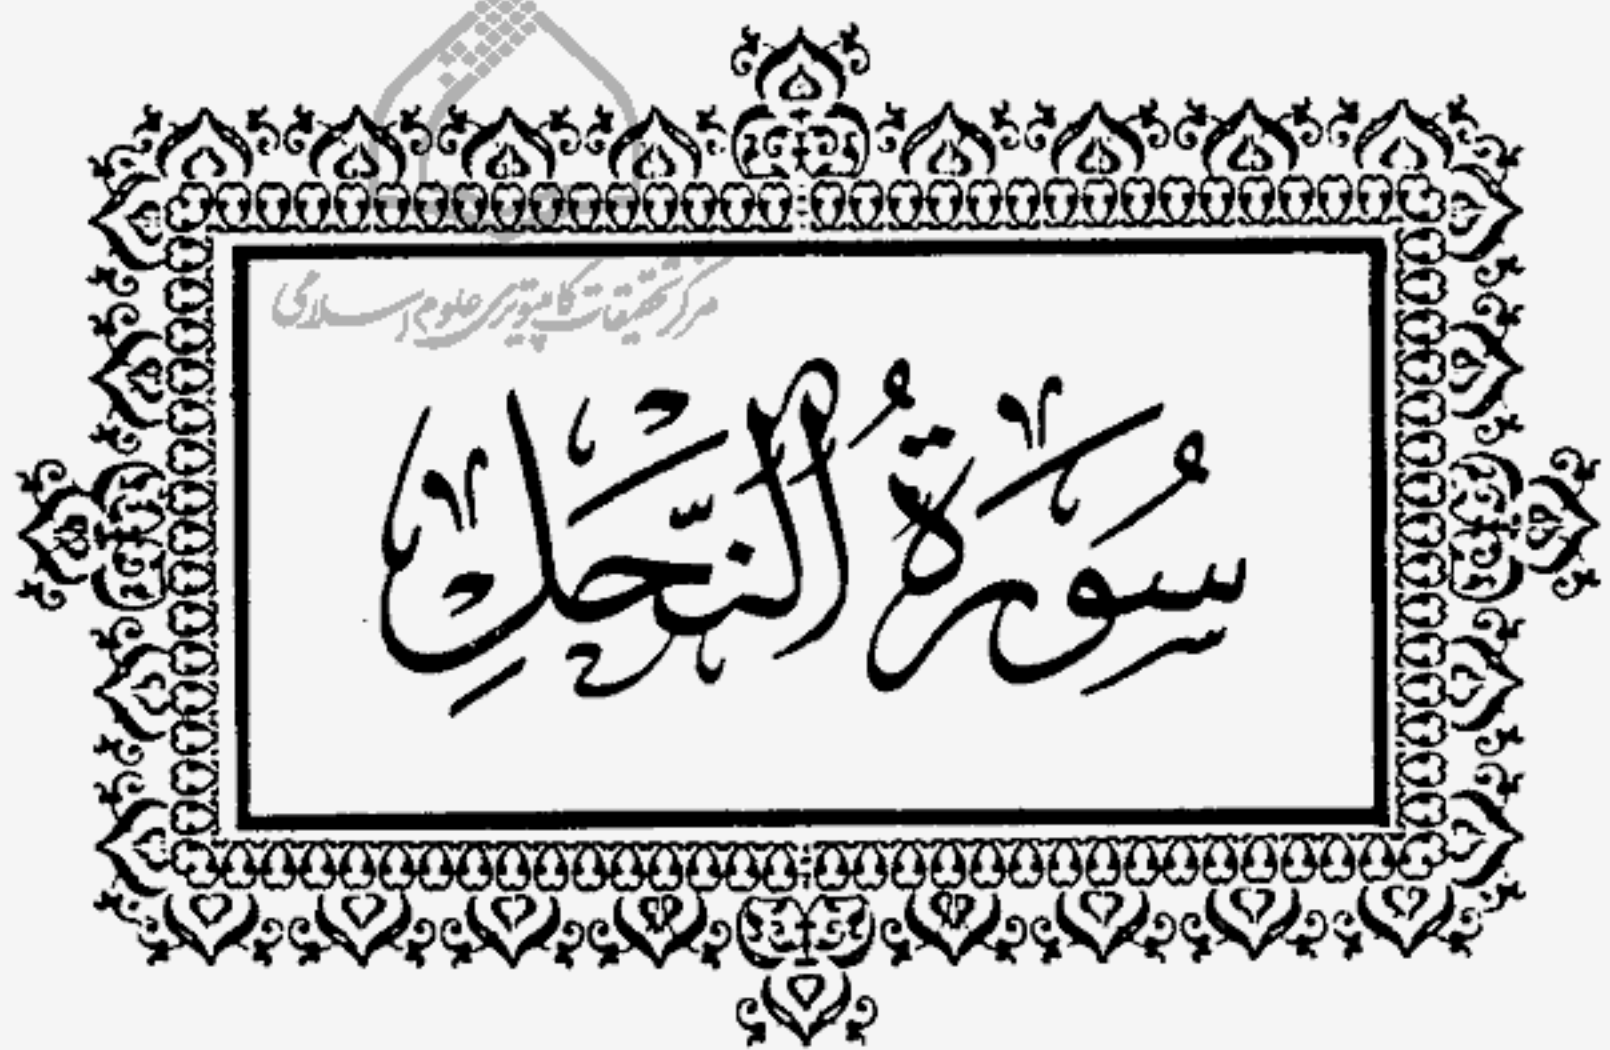 مرکز تحقیقات کامپیوتری علوم اسلامی
سُورَةُ النَّحلِ